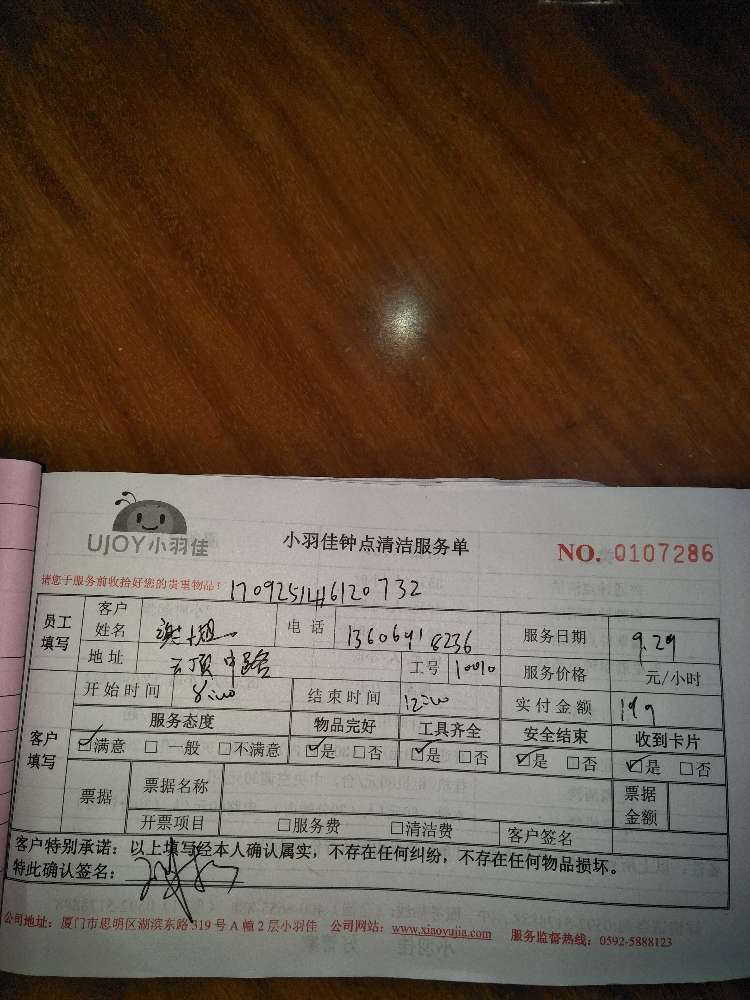 UJOY小羽佳
小羽佳钟点清洁服务单
NO. 0107286
请您于服务前收拾好您的贵重物品!
员工填写 客户姓名 电话 服务日期 9.29
地址 云顶中路 工号 10010 服务价格 元/小时
客户填写 开始时间 8:00 结束时间 12:00 实付金额 199
服务态度 物品完好 工具齐全 安全结束 收到卡片
☑满意 □一般 □不满意 ☑是 □否 ☑是 □否 ☑是 □否 ☑是 □否
票据 票据名称 票据金额
开票项目 □服务费 □清洁费 客户签名
客户特别承诺：以上填写经本人确认属实，不存在任何纠纷，不存在任何物品损坏。
特此确认签名：
公司地址：厦门市思明区湖滨东路319号A幢2层小羽佳 公司网站：www.xiaoyujia.com 服务监督热线：0592-5888123